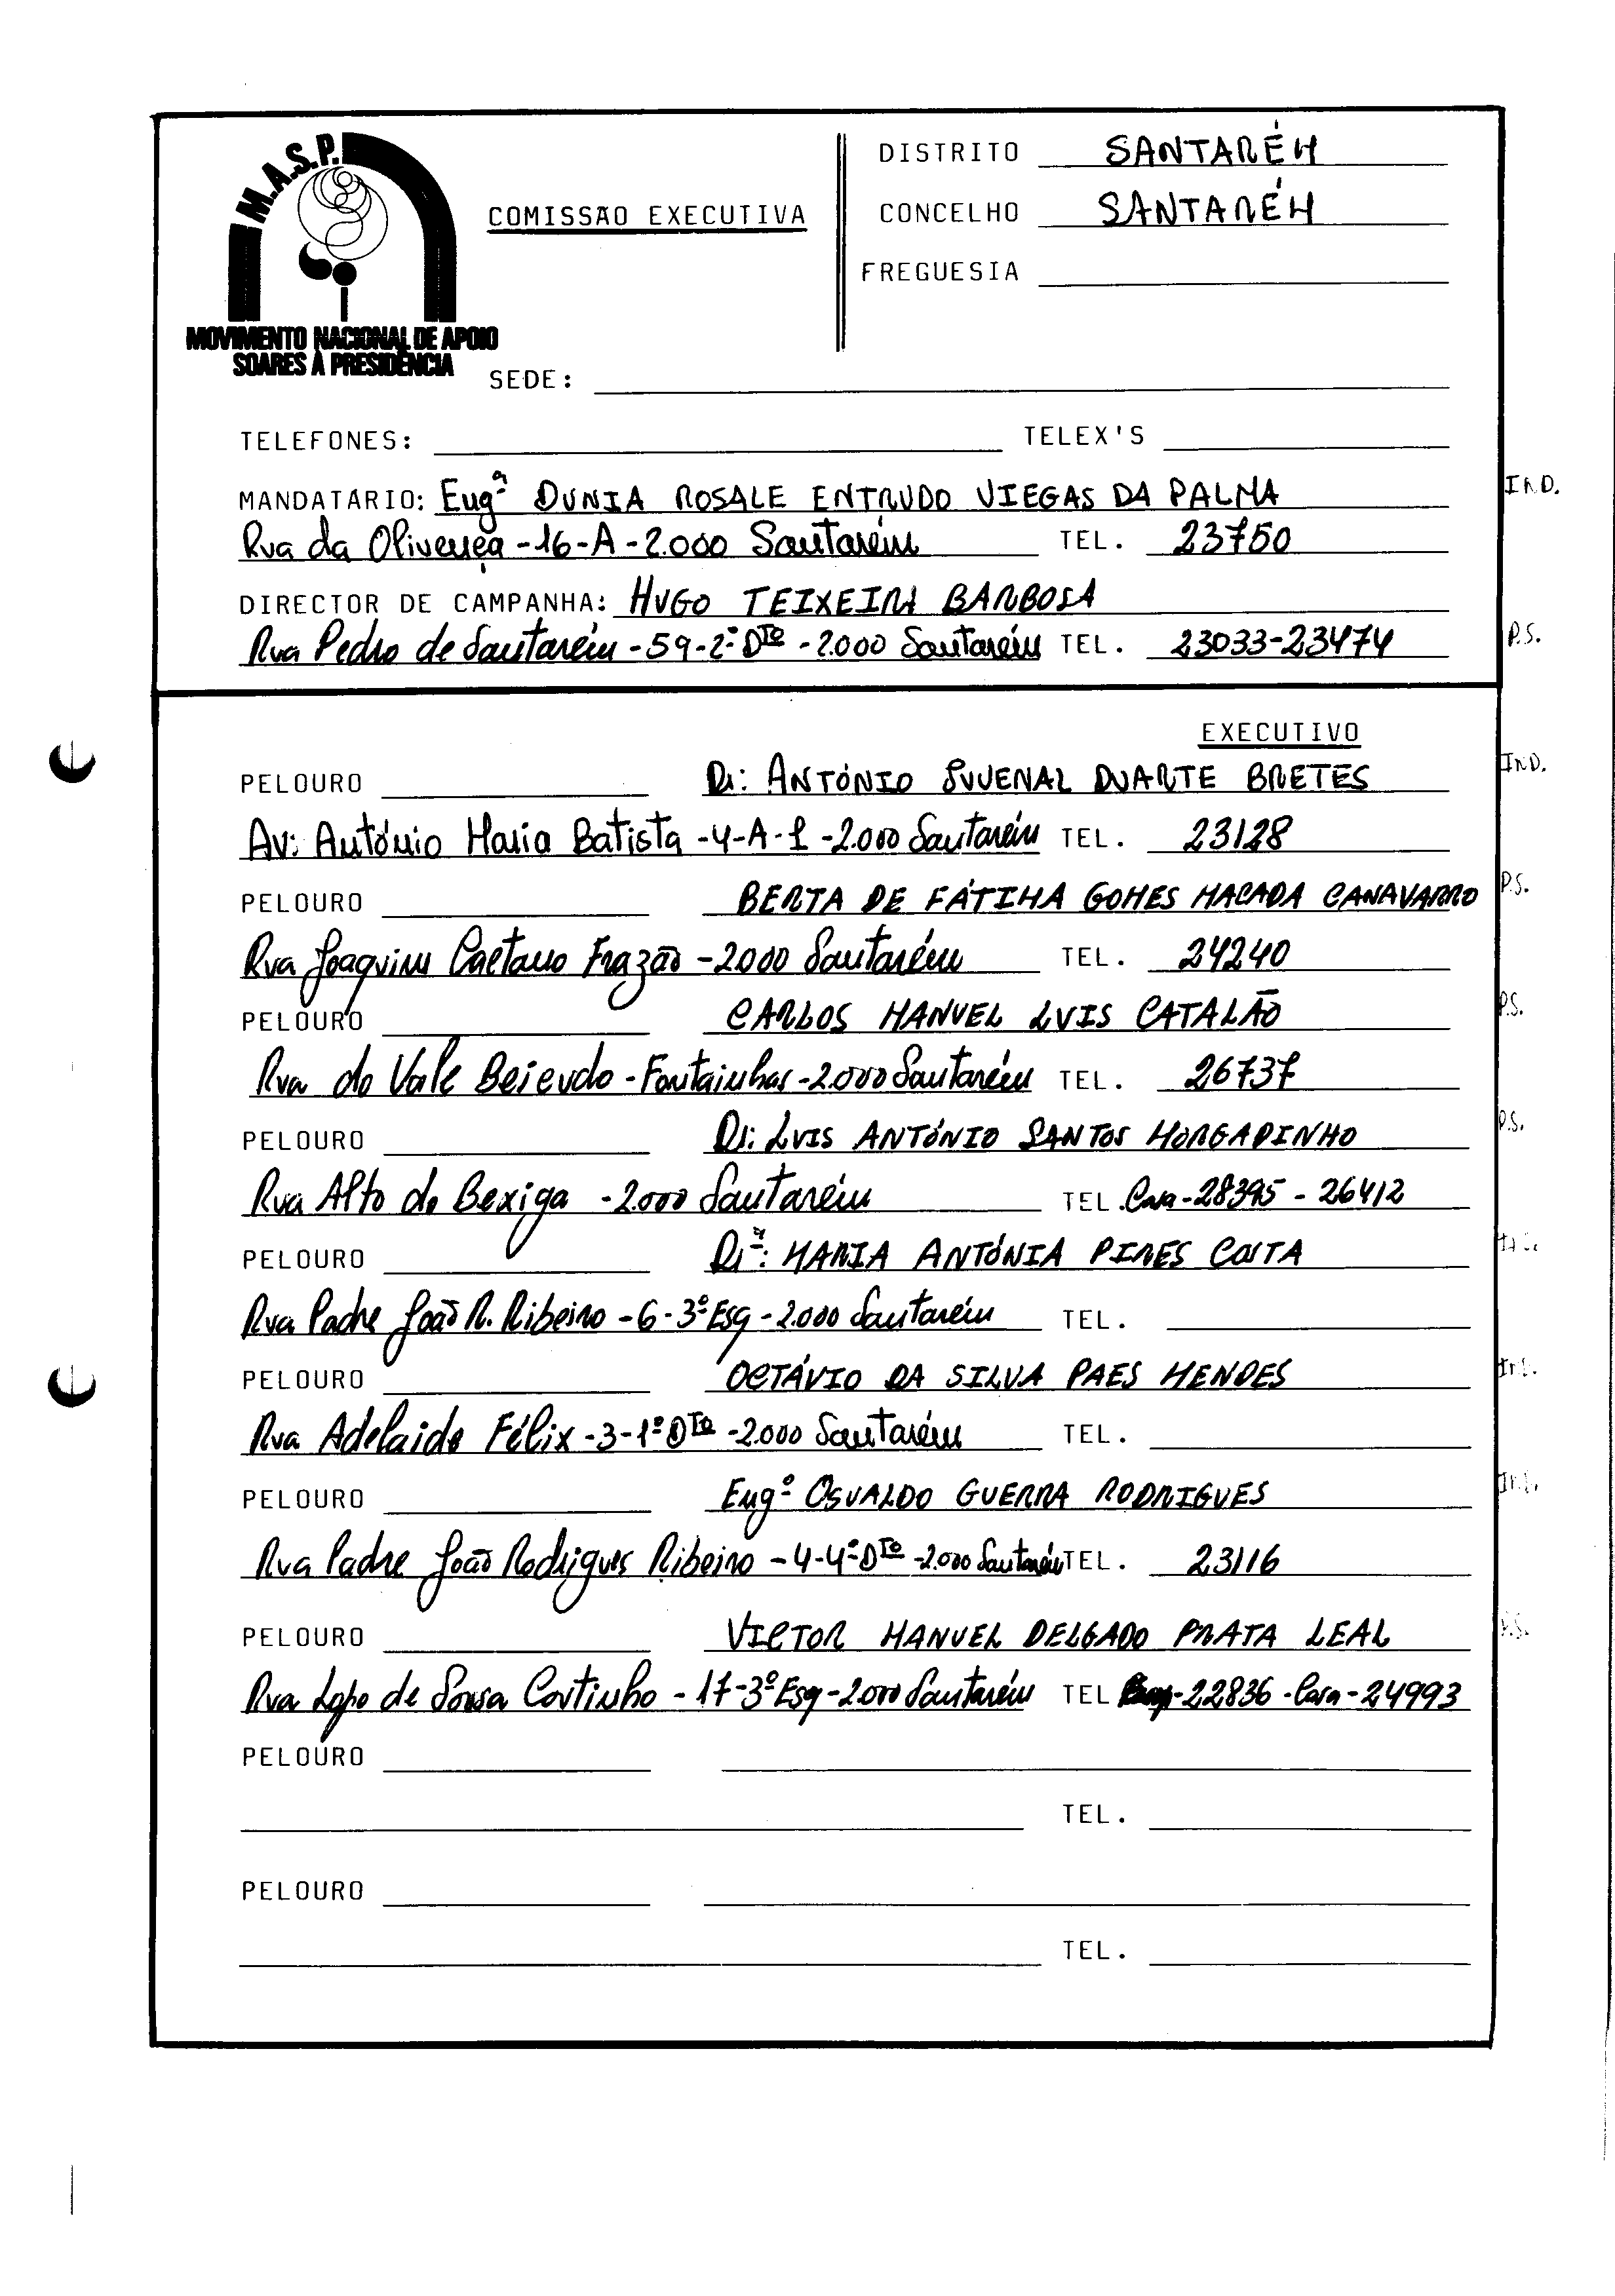 M.A.S.P.
MOVIMENTO NACIONAL DE APOIO
SOARES À PRESIDÊNCIA
COMISSÃO EXECUTIVA
DISTRITO SANTARÉM
CONCELHO SANTARÉM
FREGUESIA
SEDE:
TELEFONES: TELEX'S
MANDATÁRIO: Engª DUNIA ROSALE ENTRUDO VIEGAS DA PALMA IND.
Rua da Olivença - 16-A - 2.000 Santarém TEL. 23750
DIRECTOR DE CAMPANHA: HUGO TEIXEIRA BARBOSA
Rua Pedro de Santarém - 59-2º Dto - 2.000 Santarém TEL. 23033-23474 P.S.
EXECUTIVO
PELOURO Dr: ANTÓNIO JUVENAL DUARTE BRETES IND.
Av: António Maria Batista - 4-A-1 - 2.000 Santarém TEL. 23128
PELOURO BERTA DE FÁTIMA GOMES MACADA CANAVARRO P.S.
Rua Joaquim Caetano Frazão - 2000 Santarém TEL. 24240
PELOURO CARLOS MANUEL LUIS CATALÃO P.S.
Rua do Vale - Fontainhas - 2.000 Santarém TEL. 26737
PELOURO Dr: LUIS ANTÓNIO SANTOS MORGADINHO P.S.
Rua Alto do Bexiga - 2.000 Santarém TEL. Casa - 28395 - 26412
PELOURO Drª: MARIA ANTÓNIA PIRES COSTA
Rua Padre João R. Ribeiro - 6 - 3º Esq - 2.000 Santarém TEL.
PELOURO OCTÁVIO DA SILVA PAES MENDES Ind.
Rua Adelaide Félix - 3 - 1º Dto - 2.000 Santarém TEL.
PELOURO Engº OSVALDO GUERRA RODRIGUES Ind.
Rua Padre João Rodrigues Ribeiro - 4-4º Dto - 2.000 Santarém TEL. 23116
PELOURO VICTOR MANUEL DELGADO PRATA LEAL P.S.
Rua Lopo de Sousa Coutinho - 17-3º Esq - 2.000 Santarém TEL - 22836 - Casa - 24993
PELOURO
TEL.
PELOURO
TEL.